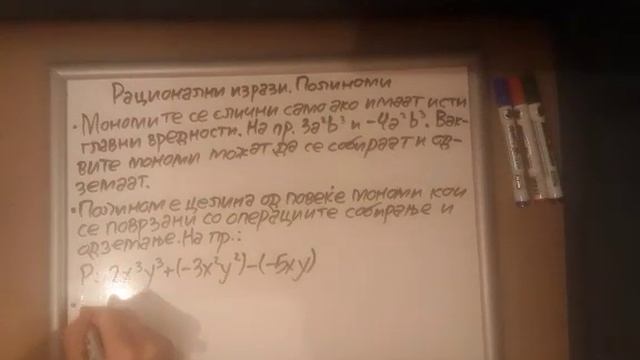 Рационални изрази. Полиноми
• Мономите се слични само ако имаат исти
главни вредности. На пр. 3a²b³ и -4a²b³. Вак-
вите мономи можат да се собираат и од-
земаат.
• Полином е целина од повеќе мономи кои
се поврзани со операциите собирање и
одземање. На пр.:
P: 2x³y³+(-3x²y²)-(-5xy)